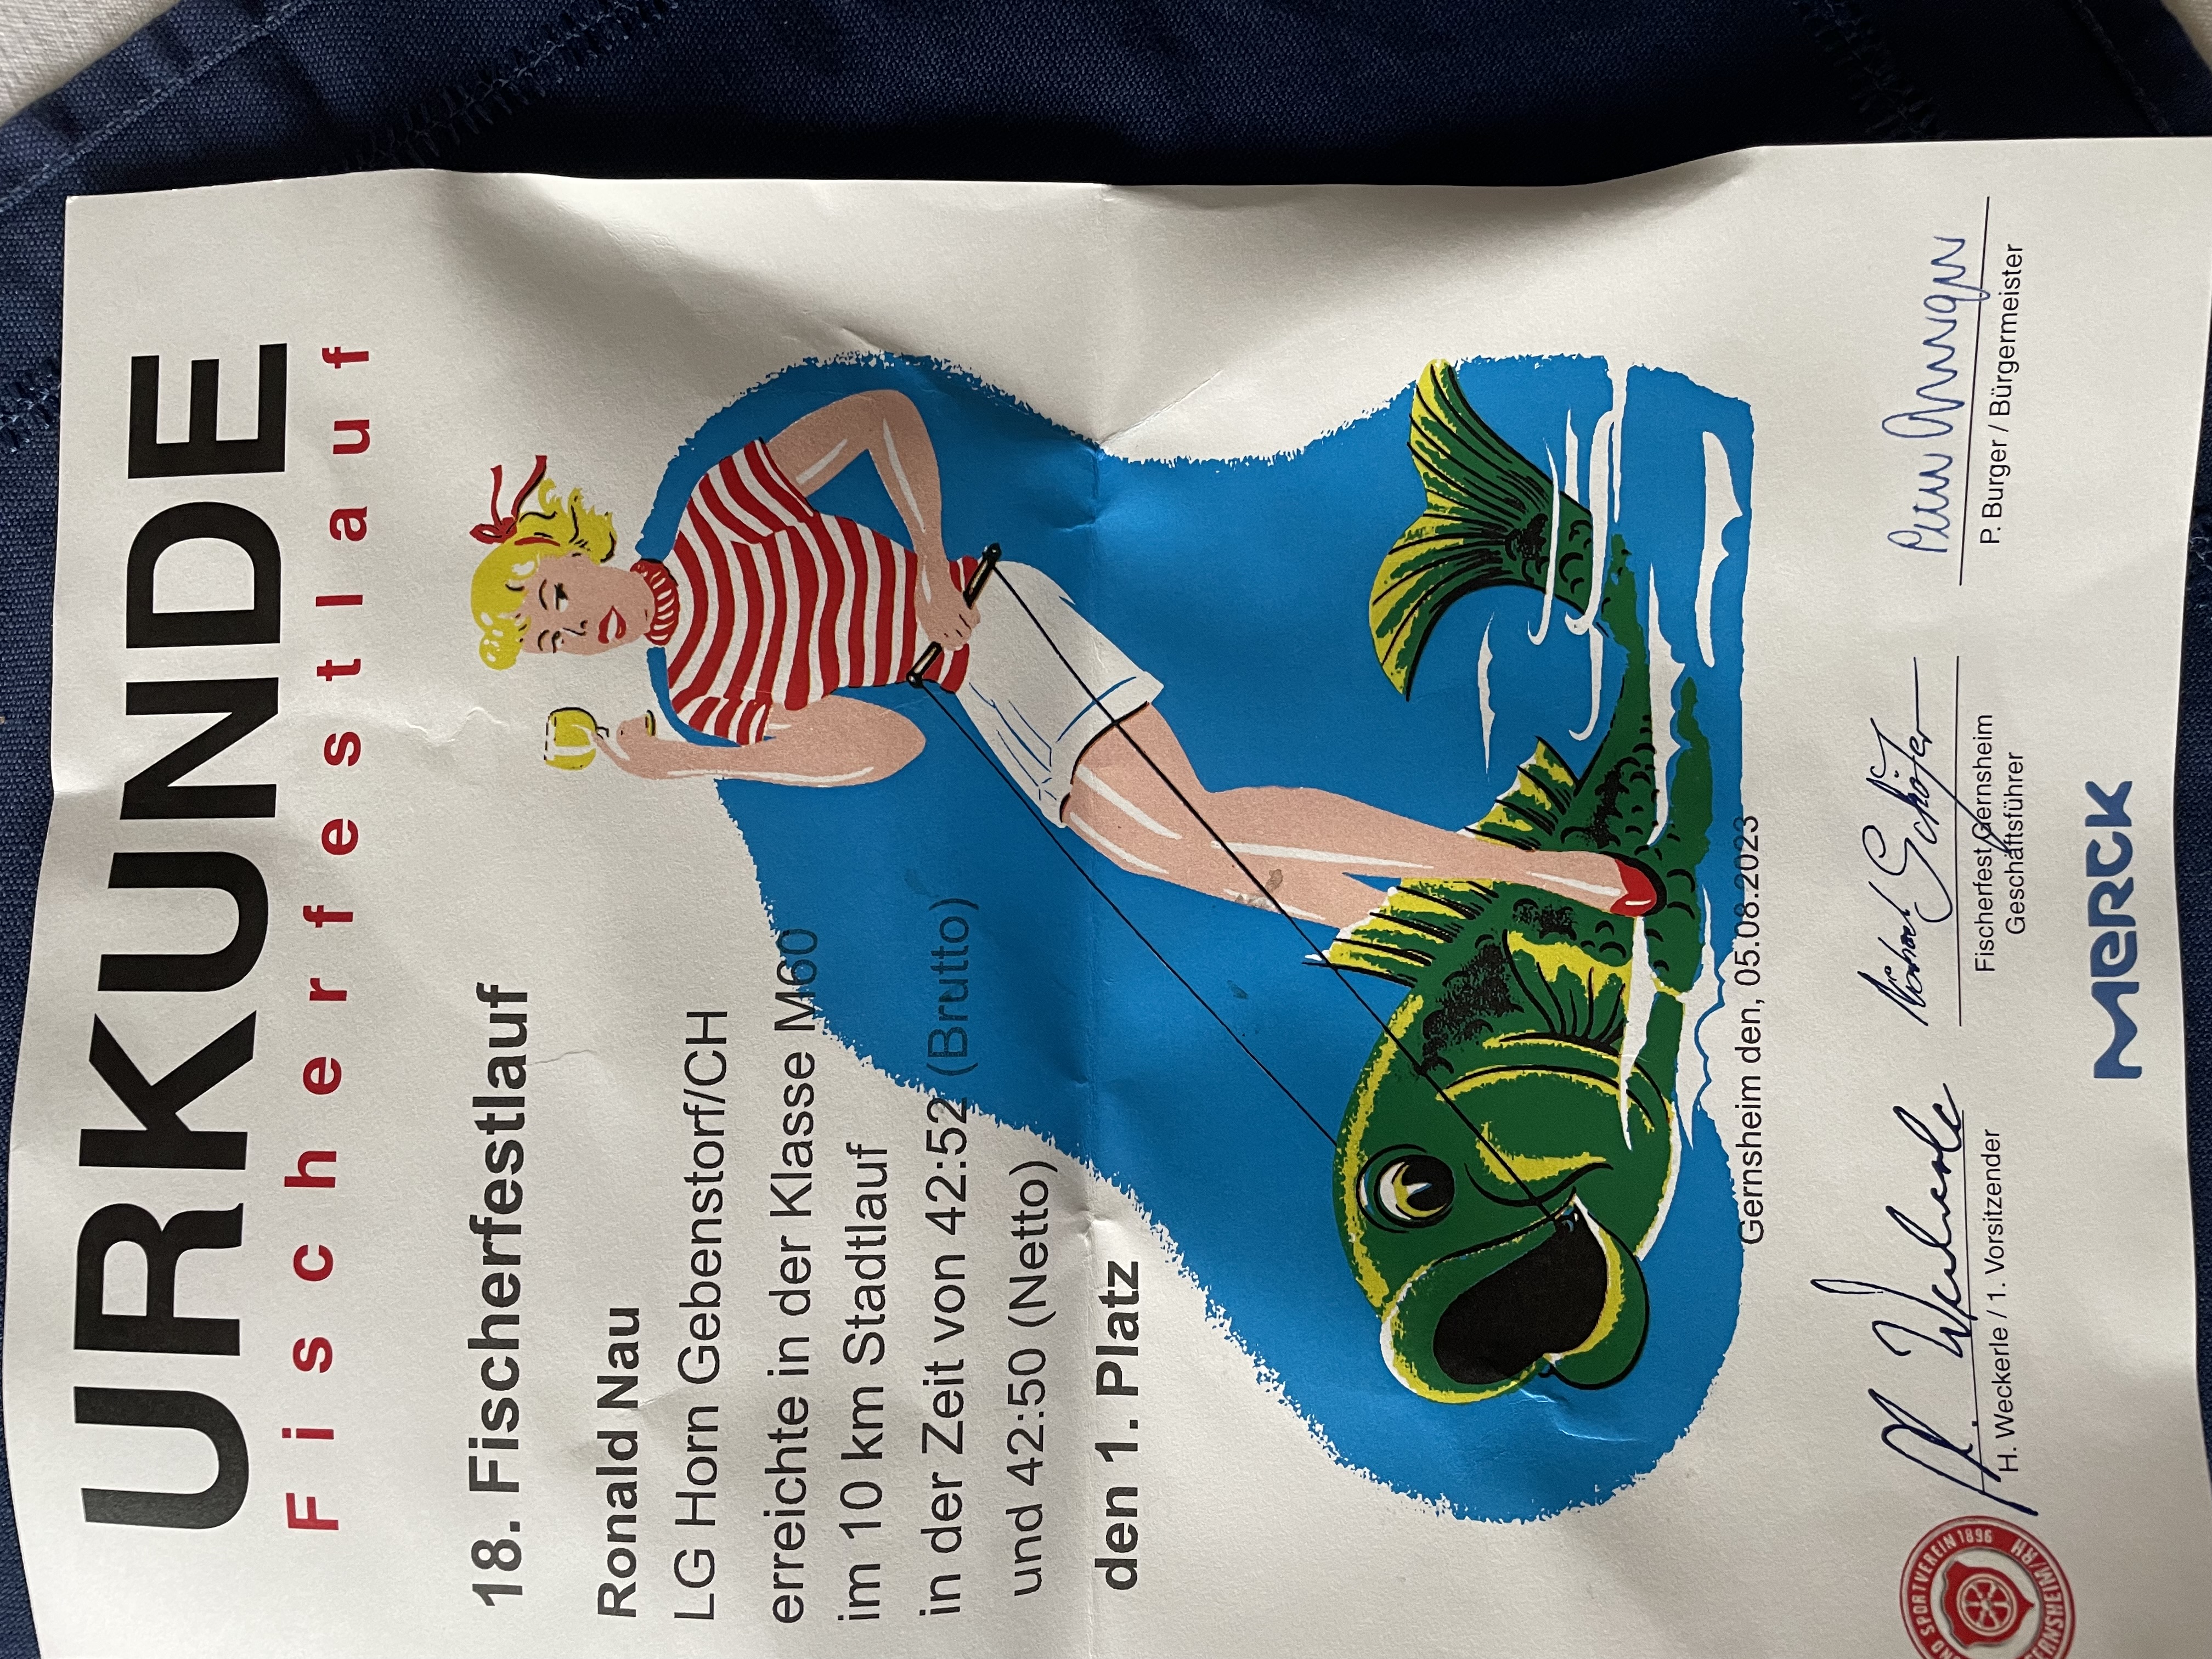 URKUNDE
Fischerfestlauf
18. Fischerfestlauf
Ronald Nau
LG Horn Gebenstorf/CH
erreichte in der Klasse M60
im 10 km Stadtlauf
in der Zeit von 42:52 (Brutto)
und 42:50 (Netto)
den 1. Platz
Gernsheim den, 05.08.2023
H. Weckerle / 1. Vorsitzender
Fischerfest Gernsheim
Geschäftsführer
P. Burger / Bürgermeister
SPORTVEREIN 1896
GERNSHEIM/RH
MERCK